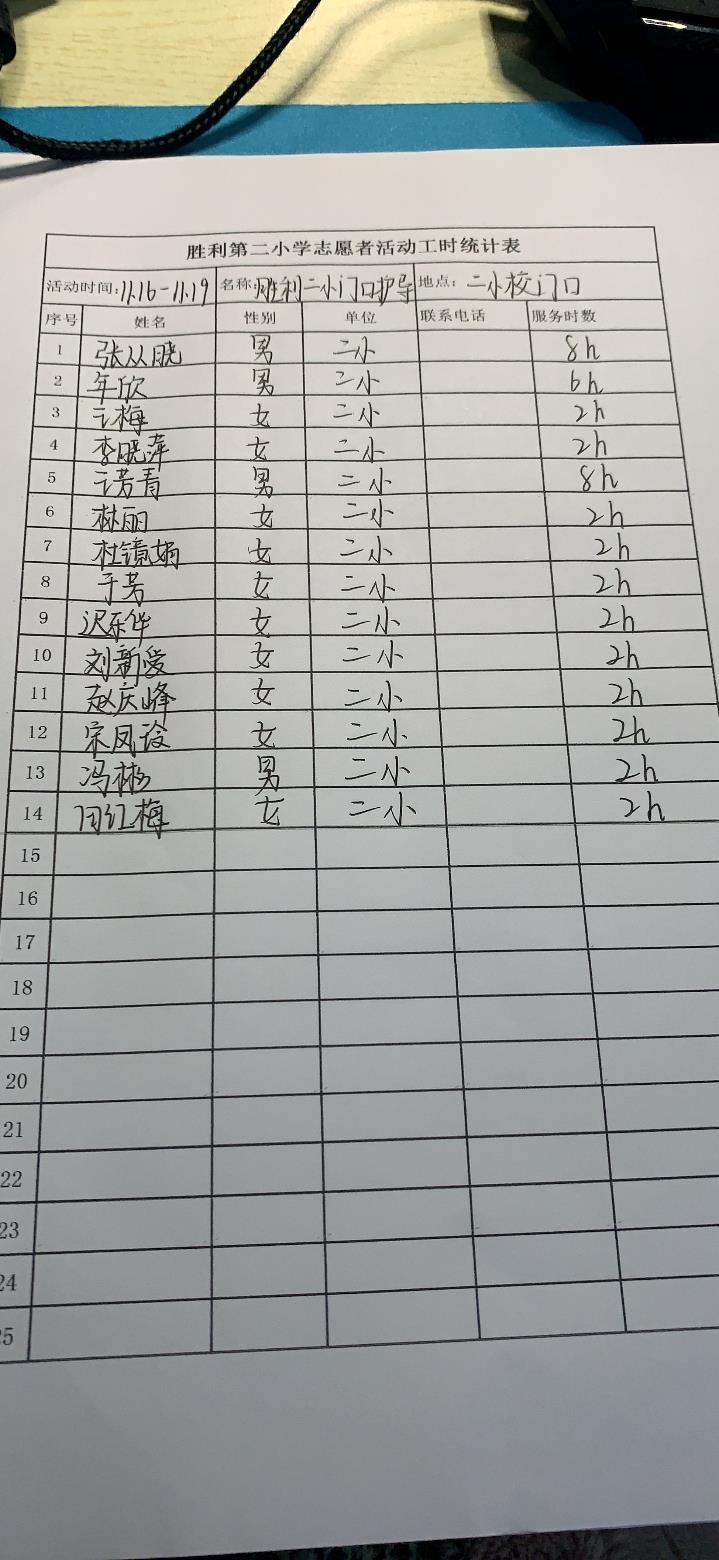 胜利第二小学志愿者活动工时统计表
活动时间:11.16-11.19 名称:胜利二小门口护导 地点:二小校门口
序号 姓名 性别 单位 联系电话 服务时数
1 张从晓 男 二小 8h
2 年欣 男 二小 6h
3 王梅 女 二小 2h
4 李晓萍 女 二小 2h
5 王芳青 男 二小 8h
6 林丽 女 二小 2h
7 杜镜娟 女 二小 2h
8 于芳 女 二小 2h
9 迟乐华 女 二小 2h
10 刘新爱 女 二小 2h
11 赵庆峰 女 二小 2h
12 宋凤玲 女 二小 2h
13 冯彬 男 二小 2h
14 田红梅 女 二小 2h
15
16
17
18
19
20
21
22
23
24
25